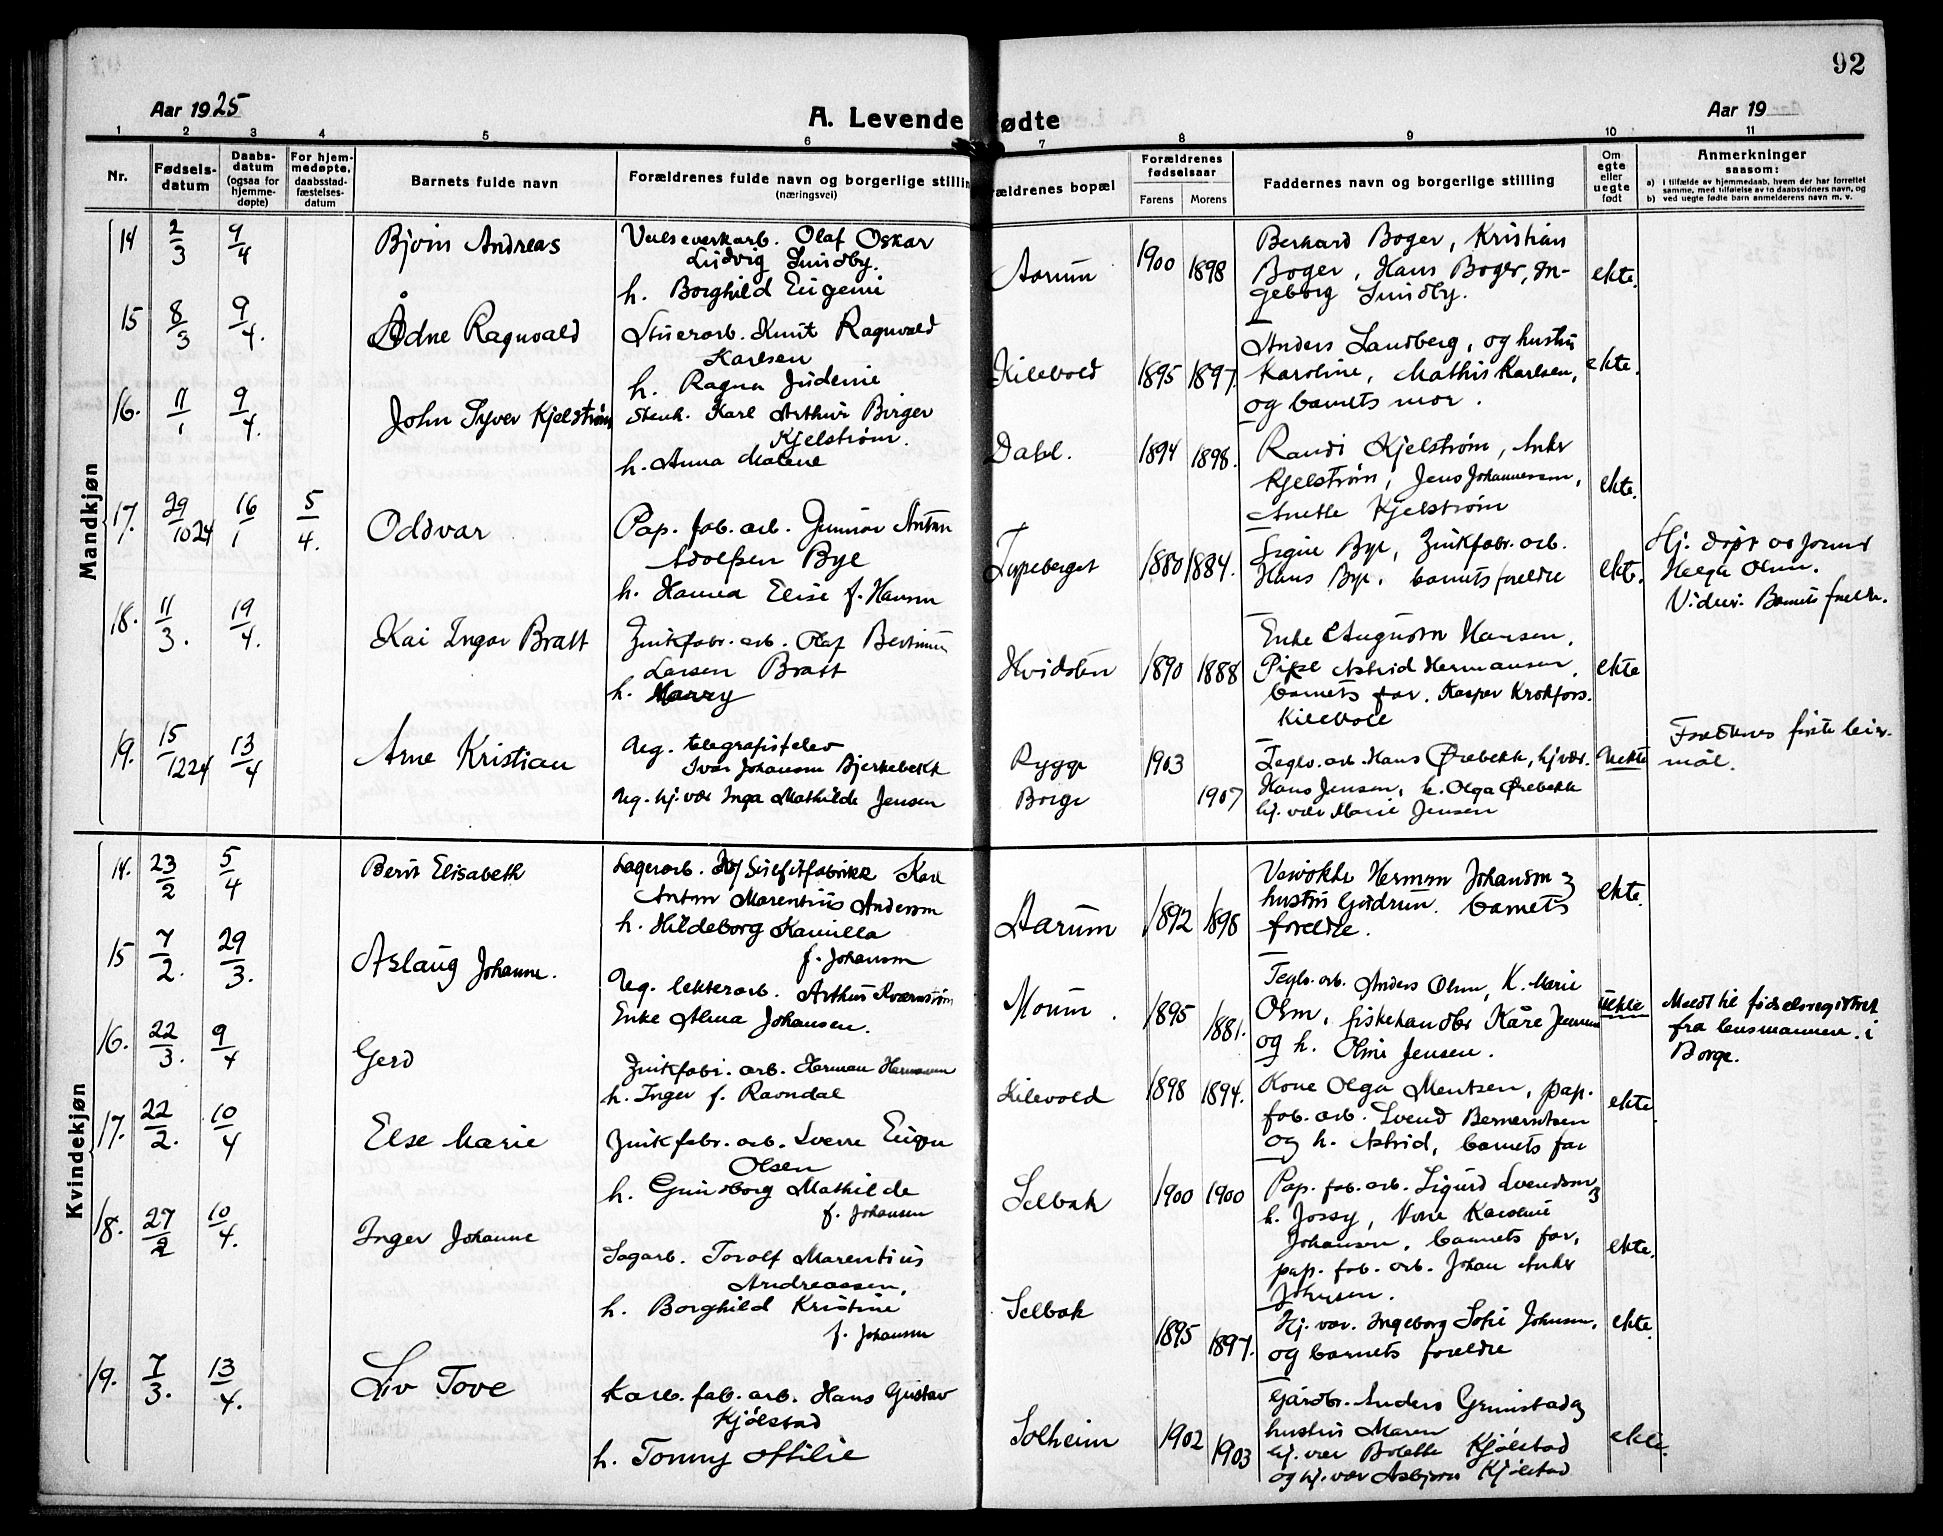 92
Aar 1925
A. Levende fødte
Aar 19
1 2 3 4 5 6 7 8 9 10 11
Nr.
Fødsels-
datum
Daabs-
datum
(ogsaa for
hjemme-
døpte)
For hjem-
medøpte,
daabsstad-
fæstelses-
datum
Barnets fulde navn
Forældrenes fulde navn og borgerlige stilling
(næringsvei)
ældrenes bopæl
Forældrenes
fødselsaar
Farens Morens
Faddernes navn og borgerlige stilling
Om
egte
eller
uegte
født
Anmerkninger
saasom:
a) i tilfælde av hjemmedaab, hvem der har forrettet
samme, med tilføielse av to daabsvidners navn, og
b) ved uegte fødte barn anmelderens navn m. v.
Mandkjøn
14 2/3 9/4 Bjørn Andreas
Valseverkarb. Olaf Oskar
Ludvig Sundby.
h. Borghild Eugenie
Aarum 1900 1898
Berhard Boger, Kristian
Boger, Hans Boger, In-
geborg Sundby.
ekte.
15 8/3 9/4. Ådne Ragnvald
Stuerarb. Knut Ragnvald
Karlsen
h. Ragna
Kilevold 1895 1897.
Anders Landberg, og hustru
Karoline, Mathis Karlsen,
og barnets mor.
ekte.
16. 11/1 9/4. John Syver Kjelstrøm
Stenh. Karl Arthur Birger
Kjelstrøm.
h. Anna Malene
Dahl. 1894 1898.
Randi Kjelstrøm, Anker
Kjelstrøm, Jens Johannessen,
Anette Kjelstrøm
ekte.
17. 29/1024 16/1 5/4. Oddvar
Pap. fab. arb. Gunnar Anton
Adolfsen Bye
h. Hanna Elise f. Hansen
1880 1884.
Signe Bye, Zinkfabr. arb.
Hans Bye, barnets foreldre
ekte.
Hj. døpt av
Helga Olsen.
Vidner. Barnets foreldre.
18. 11/3. 19/4. Kai Ingar Bratt
Zinkfabr. arb. Olaf Bertinius
Larsen Bratt
h. Harry
Hvidsten 1890 1888
Enke Augusta Hansen,
Pike Astrid Hermansen,
barnets far. Kasper Krokfoss.
Kilevold
ekte
19. 15/1224 13/4 Arne Kristian
Ug. telegrafistelev
Ivar Johansen Bjerkebekk
Ug. hj. vær Inga Mathilde Jensen
Rygge 1903
Borge 1907
Teglv. arb. Hans Ørebekk, hj vær.
Hans Jensen, h. Olga Ørebekk
hj. vær Marie Jensen
Uekte
Foreldrenes første leier-
mål.
Kvindekjøn
14. 23/2 5/4 Berit Elisabeth
Lagerarb. Sulfitfabrikk Karl
Anton Marentius Andersen
h. Hildeborg Kamilla
f. Johansen
Aarum 1892 1898
Herman Johansen og
hustru Gudrun. barnets
foreldre.
ekte.
15 7/2. 29/3. Aslaug Johanne.
Ug. lekterarb. Arthur Kvarnstrøm
Enke Alma Johansen.
Moum. 1895 1881.
Teglv. arb. Anders Olsen, K. Marie
Olsen, fiskehandler Kåre Jensen
og h. Olmi Jensen.
uekte
Meldt til fødselsregistret
fra lensmannen i
Borge.
16. 22/3. 9/4 Gerd
Zinkfabr. arb. Herman Hermansen
h. Inger f. Ravndal
Kilevold 1898 1894.
Kone Olga Mentzen, pap.
fab. arb. Svend Berntsen
og h. Astrid, barnets far
ekte
17. 22/2. 10/4 Else Marie
Zinkfabr. arb. Sverre Eugen
Olsen
h. Gunborg Mathilde
f. Johansen
Selbak 1900 1900
Pap. fab. arb. Sigurd Svendsen og
h. Jossy, Karoline
Johansen, barnets far,
pap. fab. arb. Johan Anker
Johnsen.
ekte.
18. 27/2 10/4. Inger Johanne
Sagarb. Torolf Marentius
Andreassen,
h. Borghild Kristine
f. Johansen
Selbak 1895 1897.
Hj. vær. Ingeborg Sofie Johnsen,
og barnets foreldre
ekte.
19. 7/3. 13/4. Liv Tove
Karb. fab. arb. Hans Gustav
Kjølstad
h. Tonny Ottilie
Solheim 1902 1903
Gårdbr. Anders Grimstad og
hustru Maren
hj. vær Bolette Kjølstad
og hj. vær Asbjørn Kjølstad
ekte.